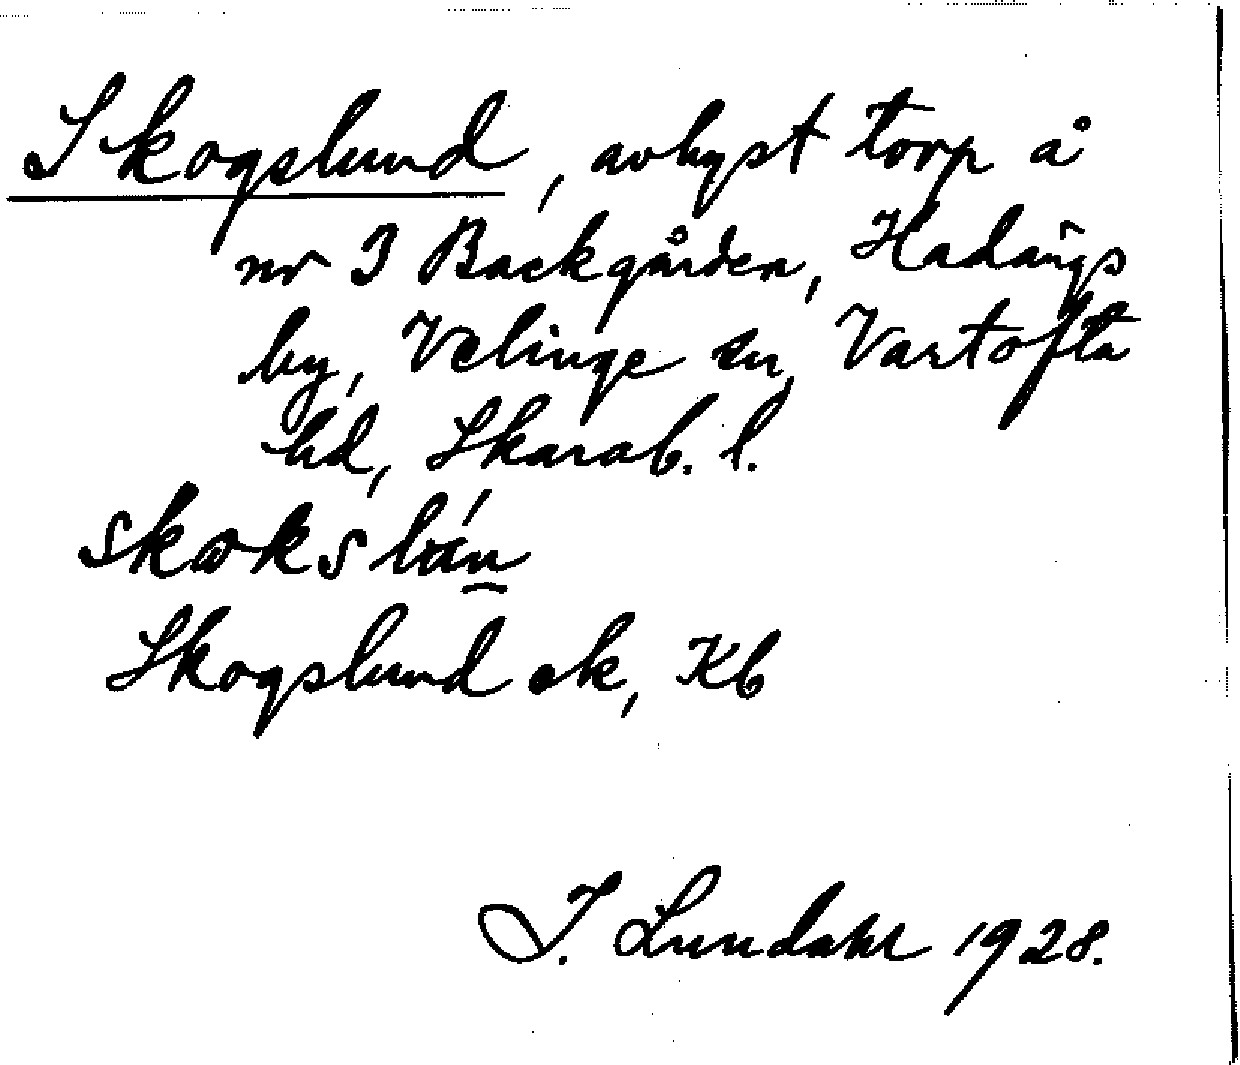 Skogslund, avhyst torp å
nr 3 Backgården, Hadängs
by, Velinge sn, Vartofta
hd, Skarab. l.
Skogslund ek, Kb
I. Lundahl 1928.